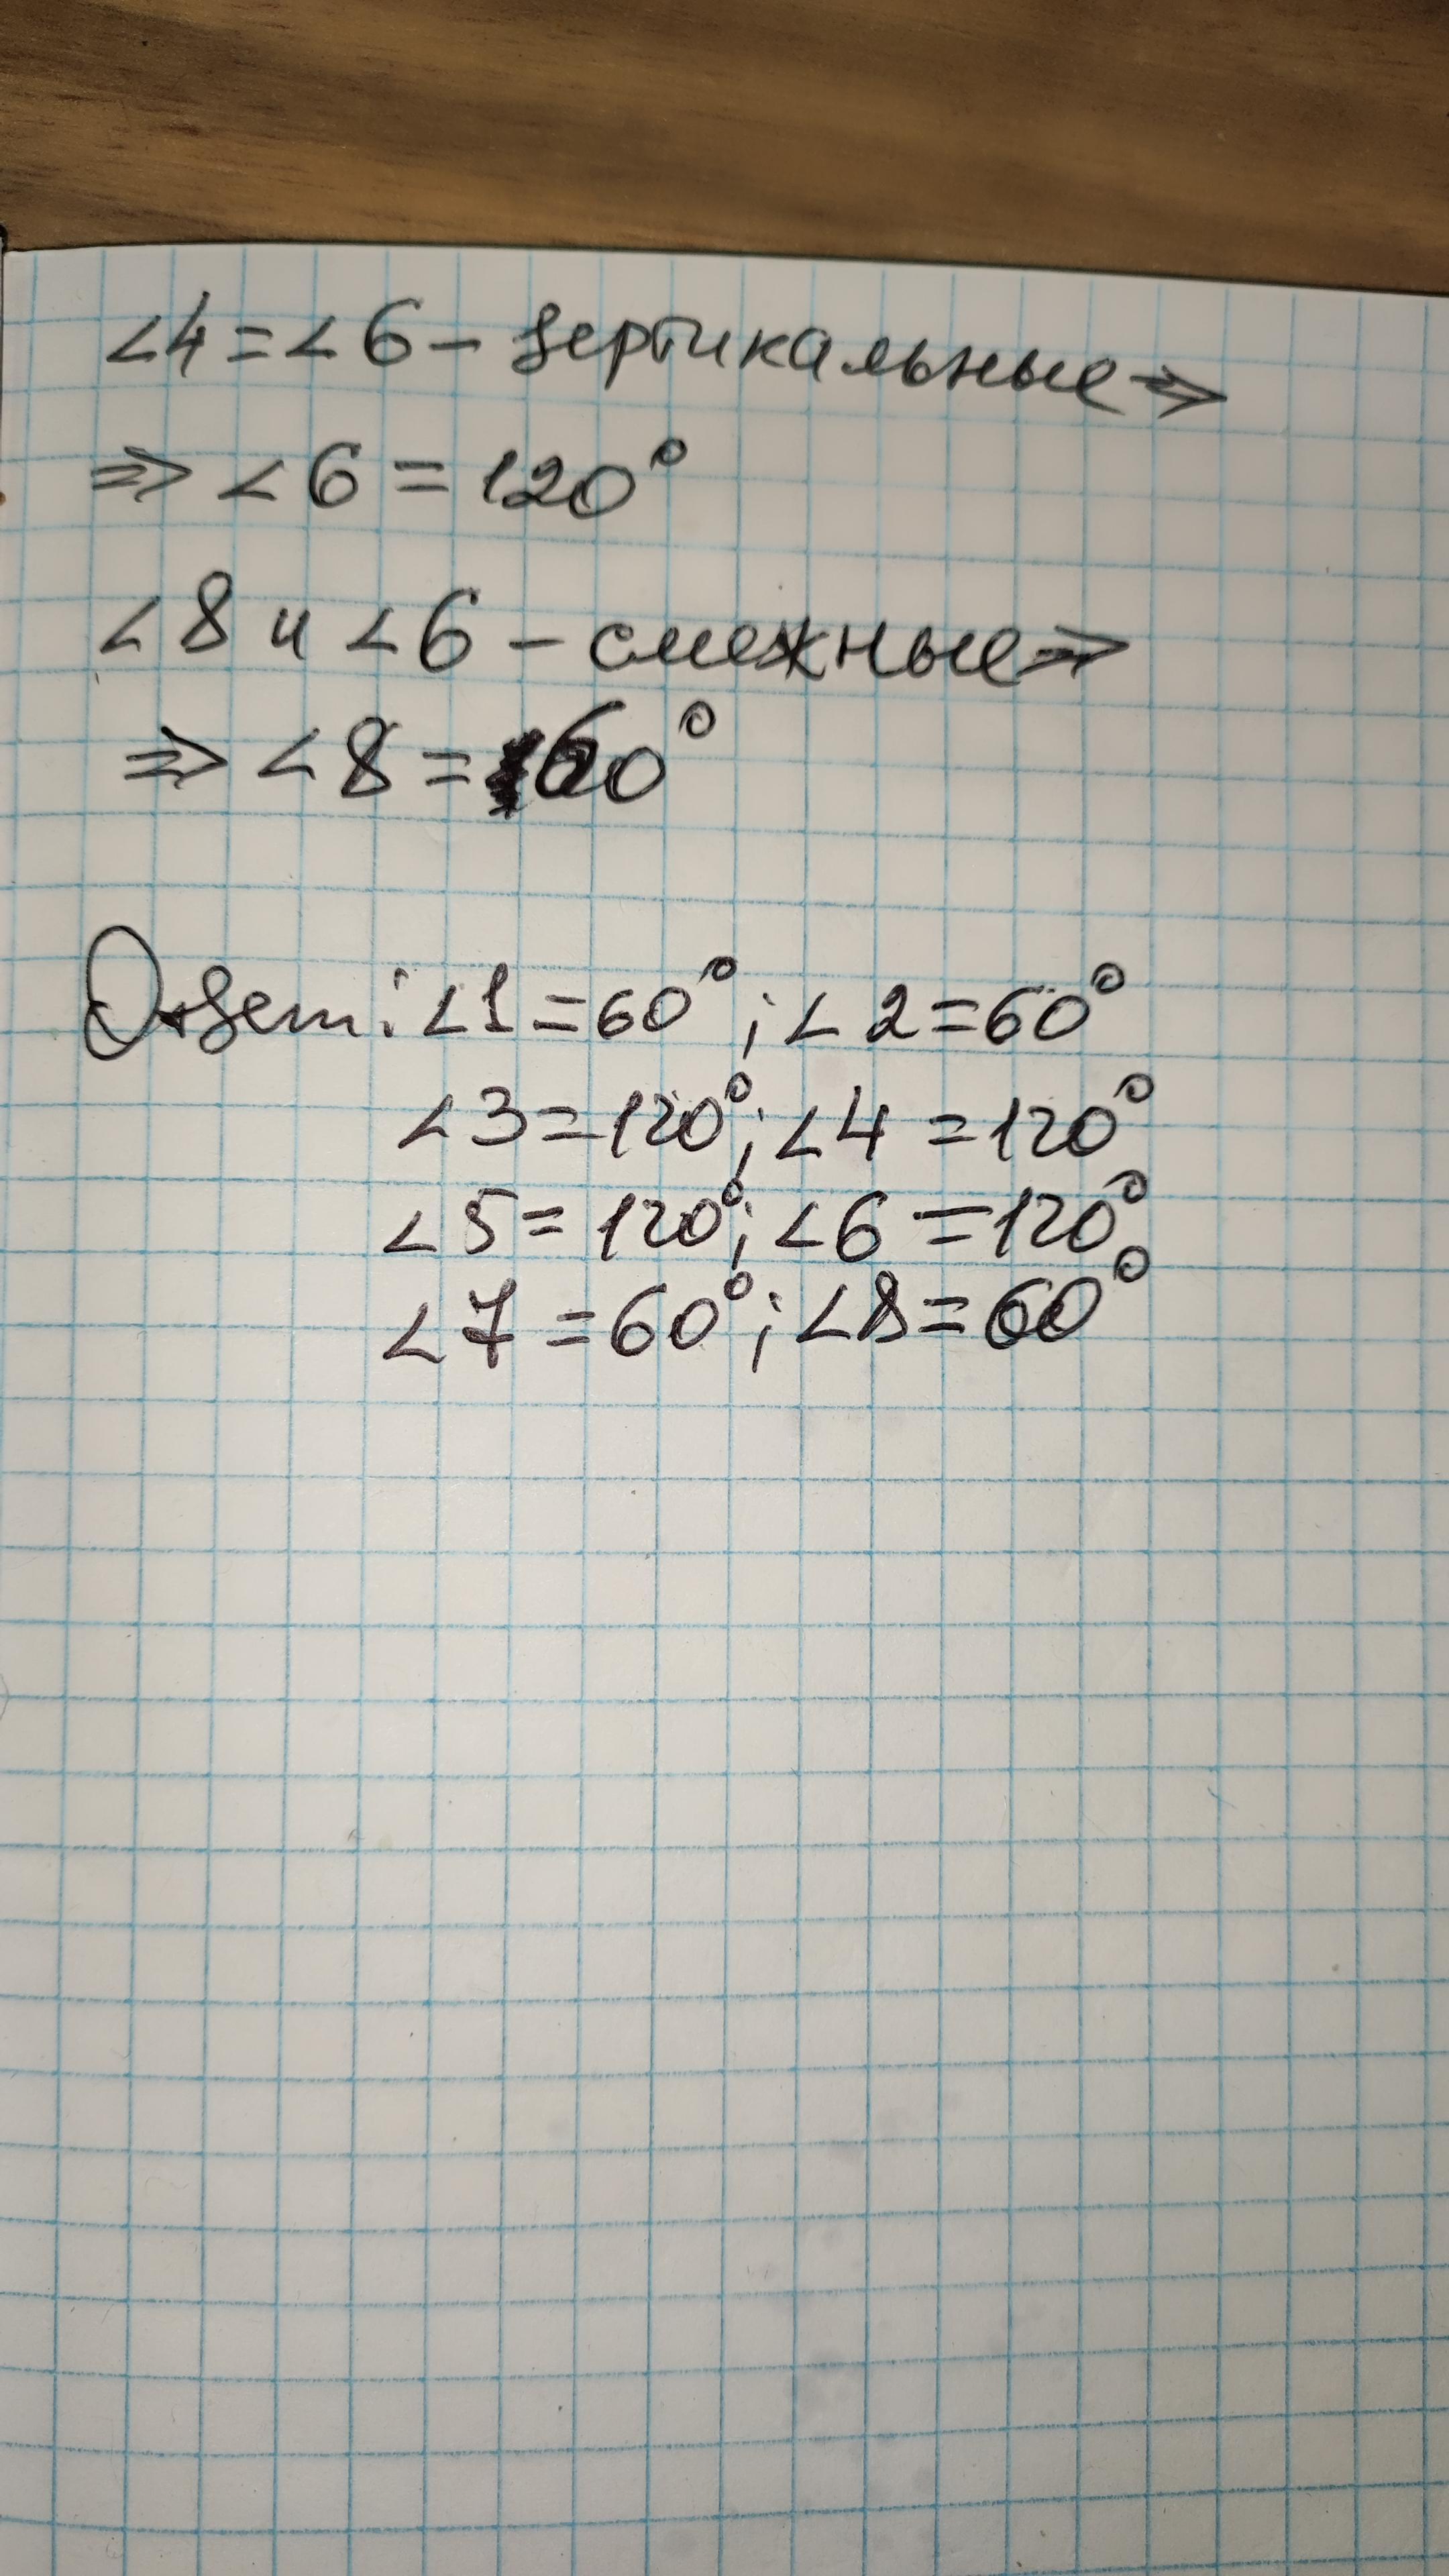 ∠4=∠6 – вертикальные ⇒
⇒ ∠6 = 120°
∠8 и ∠6 – смежные ⇒
⇒ ∠8 = 60°
Ответ: ∠1=60°; ∠2=60°
∠3=120°; ∠4=120°
∠5=120°; ∠6=120°
∠7=60°; ∠8=60°